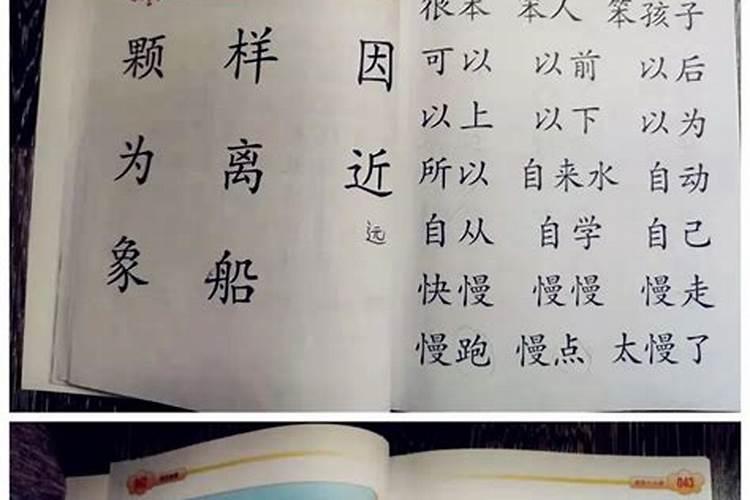 颗 样 因
为 离 近
远
象 船
很笨 笨人 笨孩子
可以 以前 以后
以上 以下 以为
所以 自来水 自动
自从 自学 自己
快慢 慢慢 慢走
慢跑 慢点 太慢了
043